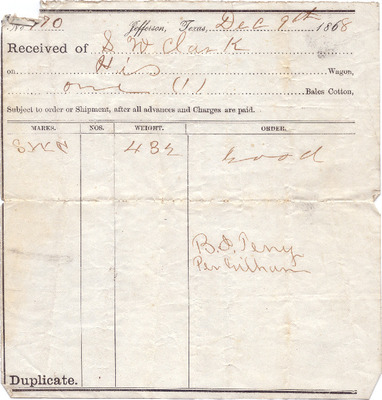 No. 90 Jefferson, Texas, Dec 9th 1868
Received of S W Clark
on His Wagon,
one (1) Bales Cotton,
Subject to order or Shipment, after all advances and Charges are paid.
MARKS. NOS. WEIGHT. ORDER.
SWC 482 Good
B. J. Terry
Per Gilham
Duplicate.